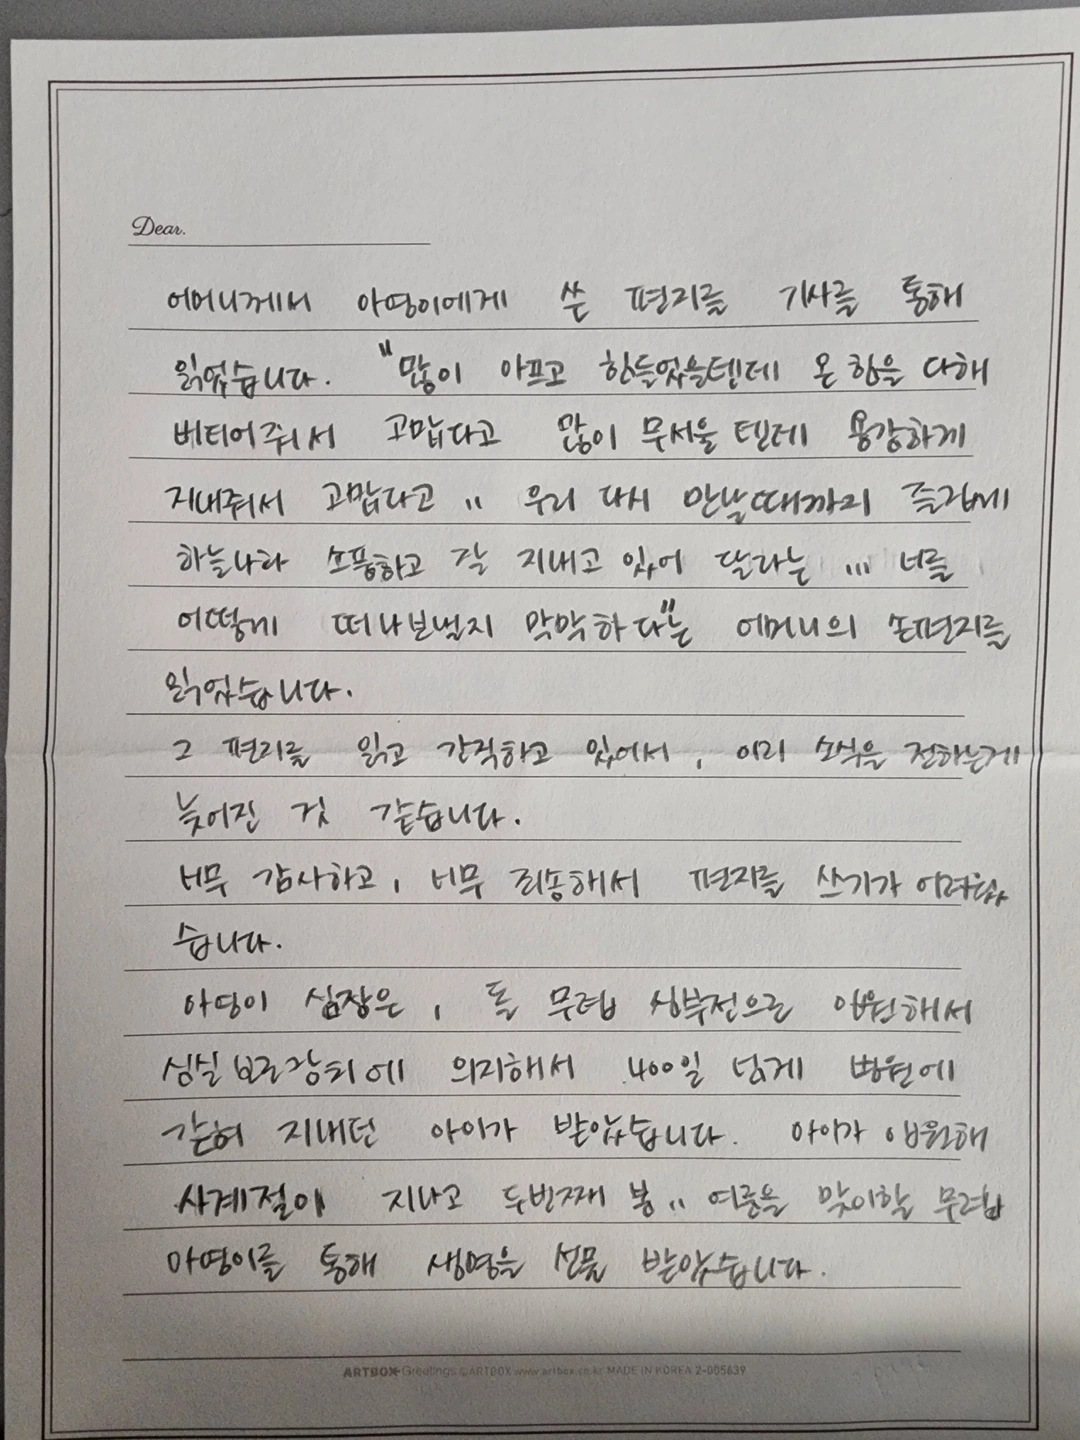 Dear.
어머니께서 아영이에게 쓴 편지를 기사를 통해
읽었습니다. "많이 아프고 힘들었을텐데 온 힘을 다해
버티어줘서 고맙다고 많이 무서울 텐데 용감하게
지내줘서 고맙다고 .. 우리 다시 만날때까지 즐겁게
하늘나라 소풍하고 잘 지내고 있어 달라는 ... 너를
어떻게 떠나보낼지 막막하다"는 어머니의 손편지를
읽었습니다.
그 편지를 읽고 간직하고 있어서, 이리 소식을 전하는게
늦어진 것 같습니다.
너무 감사하고, 너무 죄송해서 편지를 쓰기가 어려웠
습니다.
아영이 심장은, 돌 무렵 심부전으로 입원해서
심실 보조장치에 의지해서 400일 넘게 병원에
갇혀 지내던 아이가 받았습니다. 아이가 입원해
사계절이 지나고 두번째 봄.. 여름을 맞이할 무렵
아영이를 통해 생명을 선물 받았습니다.
ARTBOX Greetings ©ARTBOX www.artbox.co.kr MADE IN KOREA 2-005639